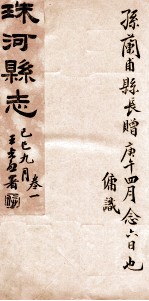 孫蘭甫縣長贈庚午四月念六日也
傭識
珠河縣志
己巳九月
卷一